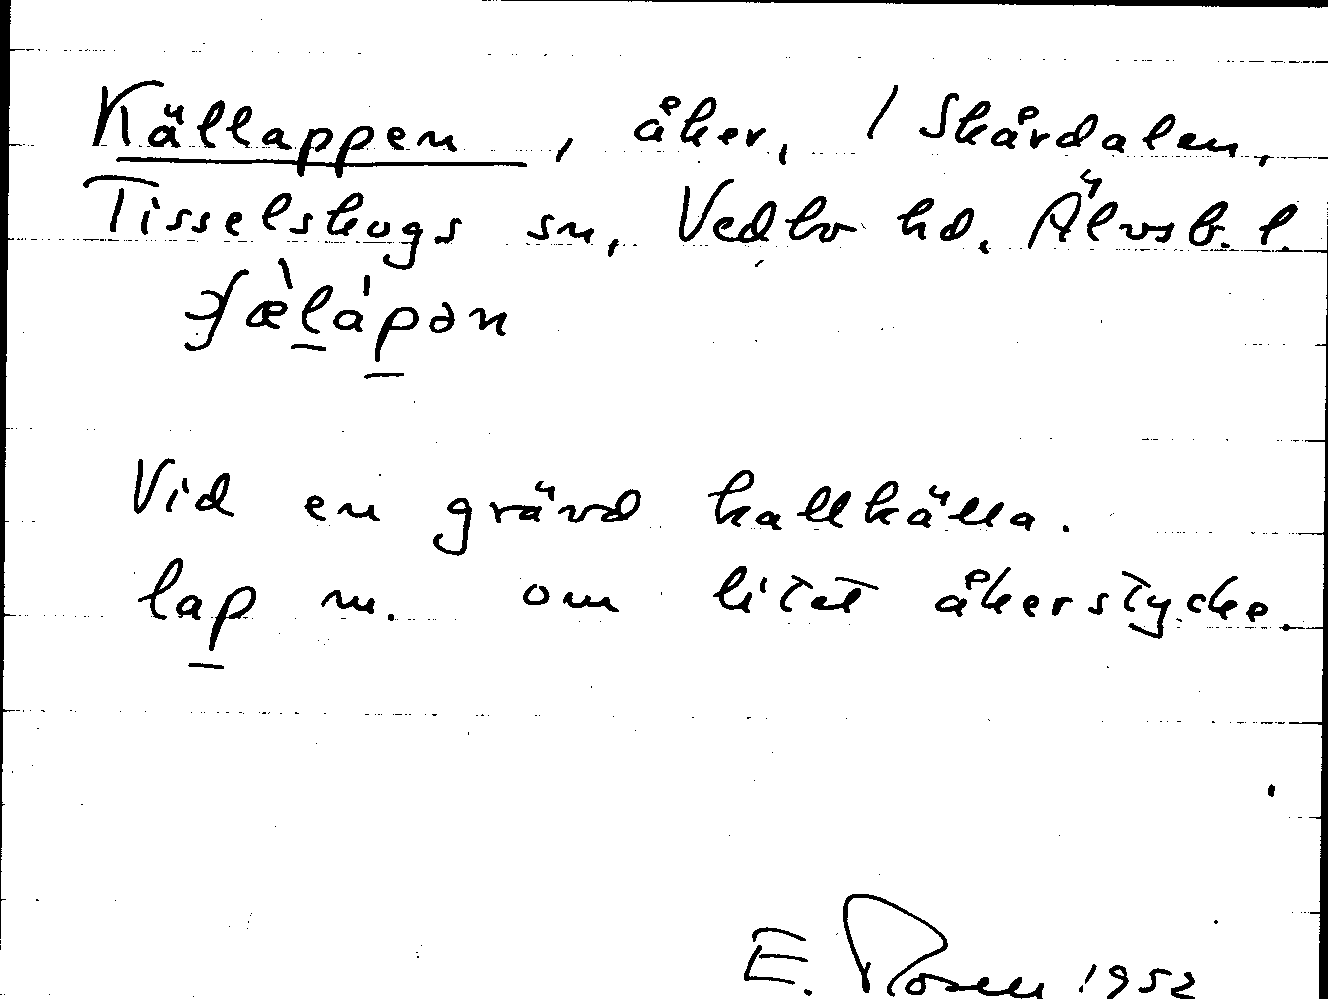 Källappen, åker, / Skårdalen,
Tisselskogs sn, Vedbo hd. Älvsb. l.
Vid en grävd kallkälla.
lap m. om litet åkerstycke.
E. Rosell 1952